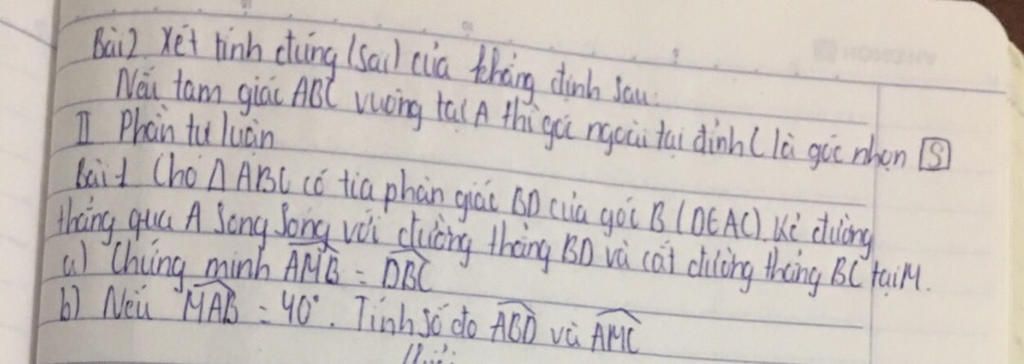 Bài 2 Xét tính đúng (sai) của khẳng định sau:
Nếu tam giác ABC vuông tại A thì góc ngoài tại đỉnh C là góc nhọn S
II Phần tự luận
Bài 1 Cho Δ ABC có tia phân giác BD của góc B (D∈AC). Kẻ đường
thẳng qua A song song với đường thẳng BD và cắt đường thẳng BC tại M.
a) Chứng minh AMB = DBC
b) Nếu MAB = 40°. Tính số đo ABD và AMC